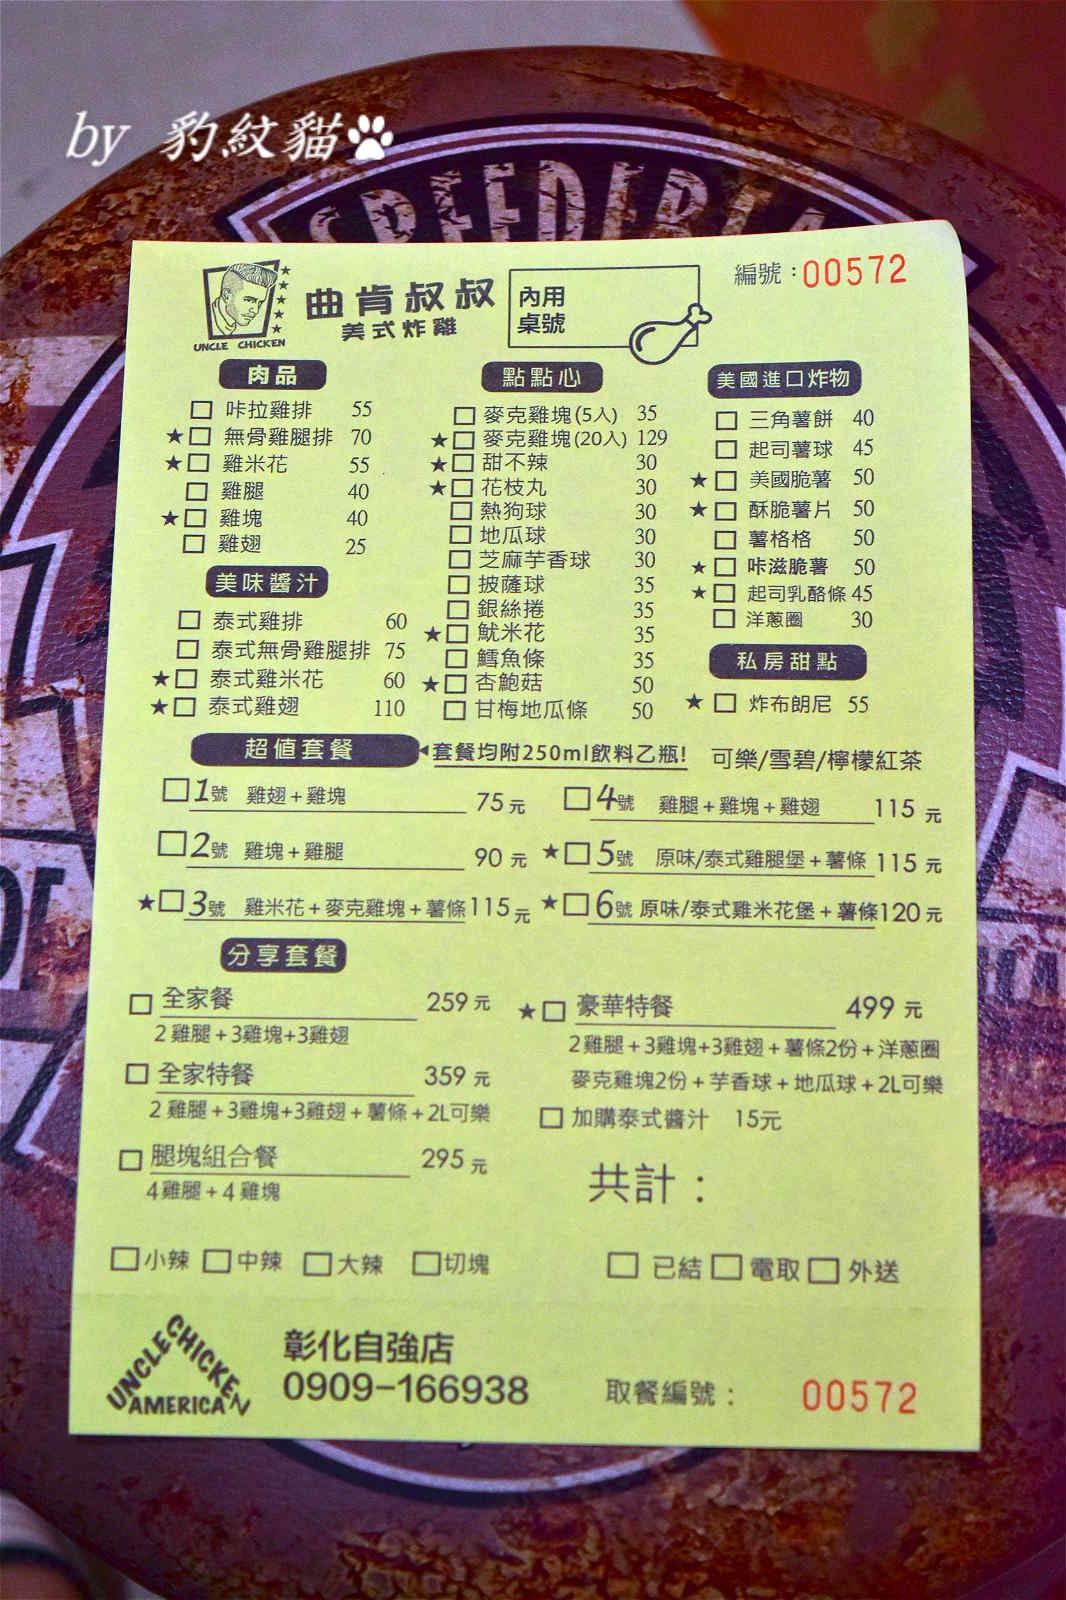 by 豹紋貓
SPEEDERIA
UNCLE CHICKEN
曲肯叔叔
美式炸雞
內用
桌號
編號：00572
肉品
□ 咔拉雞排 55
★□ 無骨雞腿排 70
★□ 雞米花 55
□ 雞腿 40
★□ 雞塊 40
□ 雞翅 25
美味醬汁
□ 泰式雞排 60
□ 泰式無骨雞腿排 75
★□ 泰式雞米花 60
★□ 泰式雞翅 110
點點心
□ 麥克雞塊(5入) 35
★□ 麥克雞塊(20入) 129
★□ 甜不辣 30
★□ 花枝丸 30
□ 熱狗球 30
□ 地瓜球 30
□ 芝麻芋香球 30
□ 披薩球 35
□ 銀絲捲 35
★□ 魷米花 35
□ 鱈魚條 35
★□ 杏鮑菇 50
□ 甘梅地瓜條 50
美國進口炸物
□ 三角薯餅 40
□ 起司薯球 45
★□ 美國脆薯 50
★□ 酥脆薯片 50
□ 薯格格 50
★□ 咔滋脆薯 50
★□ 起司乳酪條 45
□ 洋蔥圈 30
私房甜點
★□ 炸布朗尼 55
超值套餐 套餐均附250ml飲料乙瓶! 可樂/雪碧/檸檬紅茶
□1號 雞翅+雞塊 75元
□2號 雞塊+雞腿 90元
★□3號 雞米花+麥克雞塊+薯條115元
□4號 雞腿+雞塊+雞翅 115元
★□5號 原味/泰式雞腿堡+薯條 115元
★□6號 原味/泰式雞米花堡+薯條120元
分享套餐
□ 全家餐 259元
2雞腿+3雞塊+3雞翅
□ 全家特餐 359元
2雞腿+3雞塊+3雞翅+薯條+2L可樂
□ 腿塊組合餐 295元
4雞腿+4雞塊
★□ 豪華特餐 499元
2雞腿+3雞塊+3雞翅+薯條2份+洋蔥圈
麥克雞塊2份+芋香球+地瓜球+2L可樂
□ 加購泰式醬汁 15元
共計：
□小辣 □中辣 □大辣 □切塊
□ 已結 □ 電取 □ 外送
UNCLE CHICKEN
AMERICA
彰化自強店
0909-166938
取餐編號： 00572